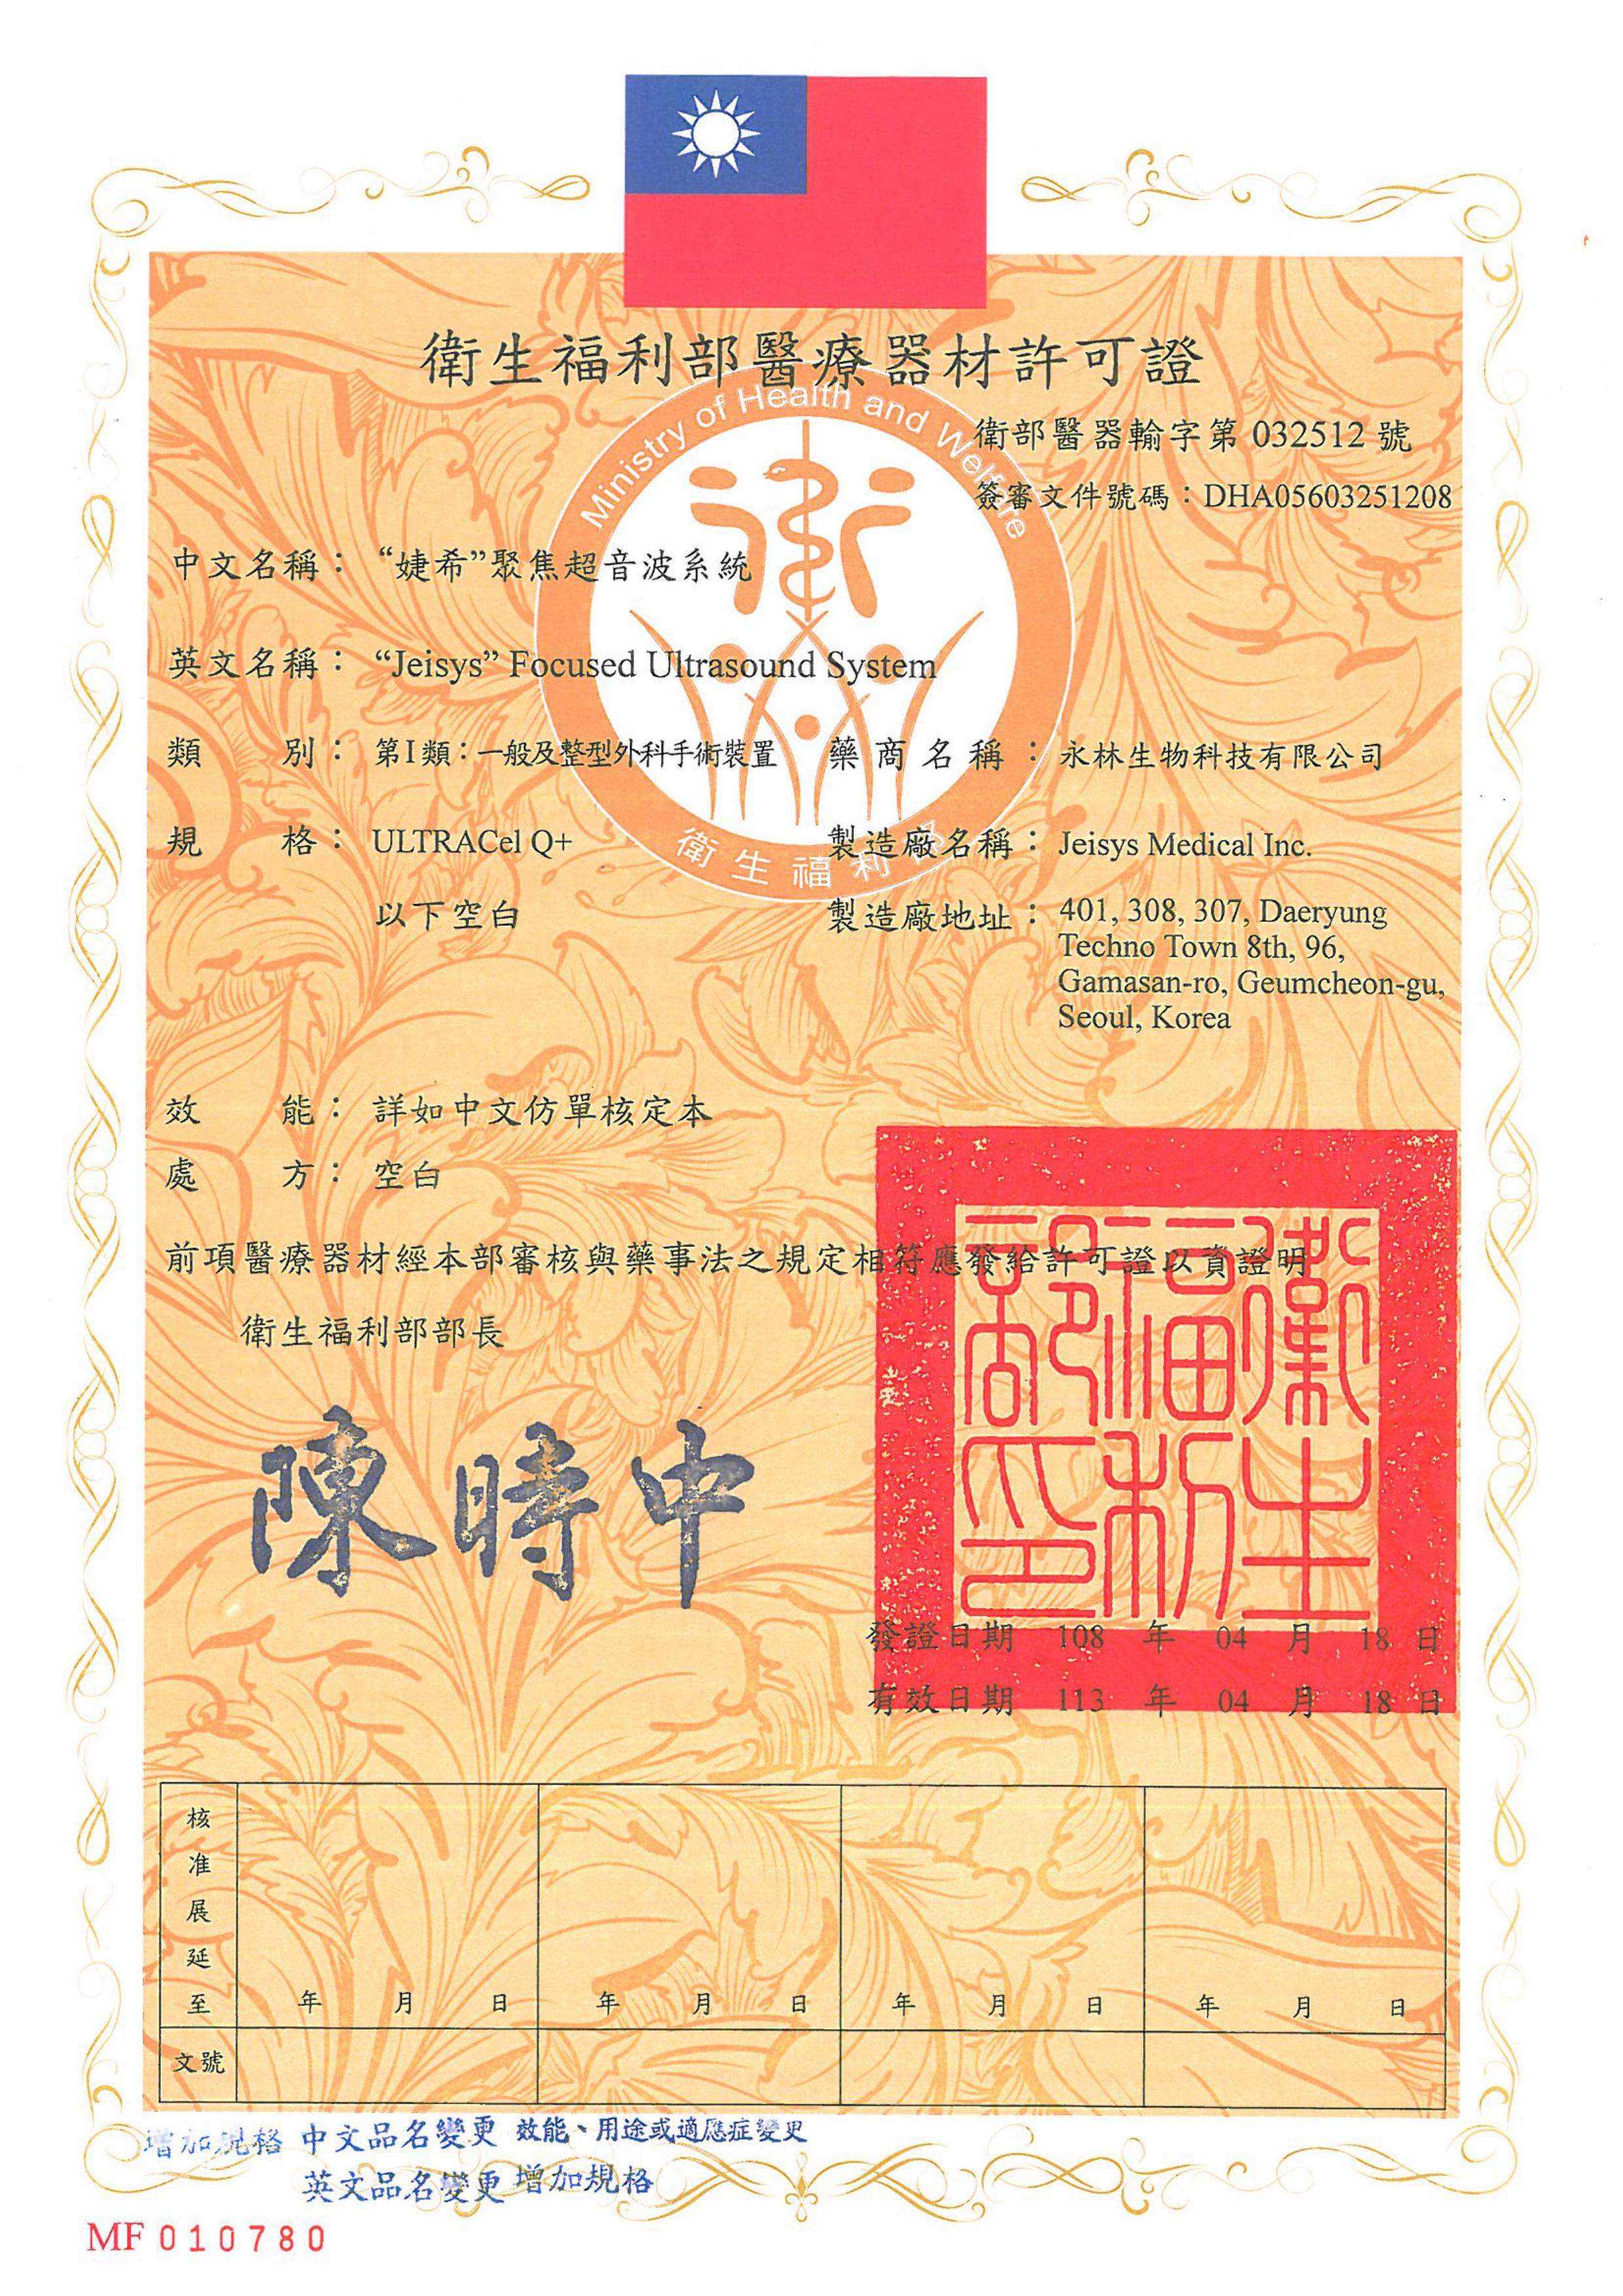 衛生福利部醫療器材許可證
Ministry of Health and Welfare
衛部醫器輸字第 032512 號
簽審文件號碼：DHA05603251208
中文名稱： “婕希”聚焦超音波系統
英文名稱： “Jeisys” Focused Ultrasound System
類 別： 第I類：一般及整型外科手術裝置 藥商名稱： 永林生物科技有限公司
規 格： ULTRACel Q+ 製造廠名稱： Jeisys Medical Inc.
衛生福利部
以下空白 製造廠地址： 401, 308, 307, Daeryung
Techno Town 8th, 96,
Gamasan-ro, Geumcheon-gu,
Seoul, Korea
效 能： 詳如中文仿單核定本
處 方： 空白
前項醫療器材經本部審核與藥事法之規定相符應發給許可證以資證明
衛生福利部部長
陳時中
衛生福利部印
發證日期 108 年 04 月 18 日
有效日期 113 年 04 月 18 日
核准展延至 年 月 日 年 月 日 年 月 日 年 月 日
文號
增加規格 中文品名變更 效能、用途或適應症變更
英文品名變更 增加規格
MF 010780